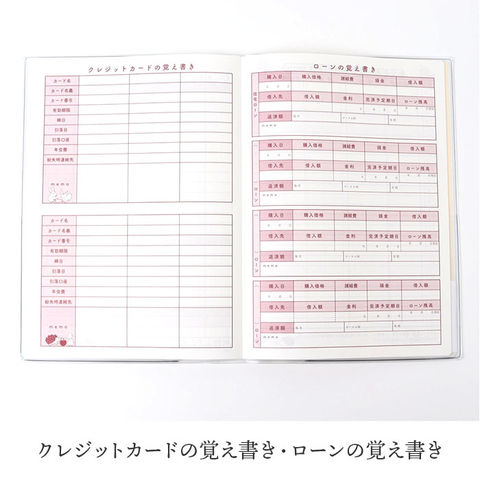 クレジットカードの覚え書き
カード名
カード名義
カード番号
有効期限
締日
引落日
引落口座
年会費
紛失時連絡先
memo
カード名
カード名義
カード番号
有効期限
締日
引落日
引落口座
年会費
紛失時連絡先
memo
ローンの覚え書き
住宅ローン
購入日 購入価格 諸経費 頭金 借入額
借入先 借入額 金利 完済予定期日 ローン残高
返済額
memo
ローン
購入日 購入価格 諸経費 頭金 借入額
借入先 借入額 金利 完済予定期日 ローン残高
返済額
memo
ローン
購入日 購入価格 諸経費 頭金 借入額
借入先 借入額 金利 完済予定期日 ローン残高
返済額
memo
ローン
購入日 購入価格 諸経費 頭金 借入額
借入先 借入額 金利 完済予定期日 ローン残高
返済額
memo
クレジットカードの覚え書き・ローンの覚え書き